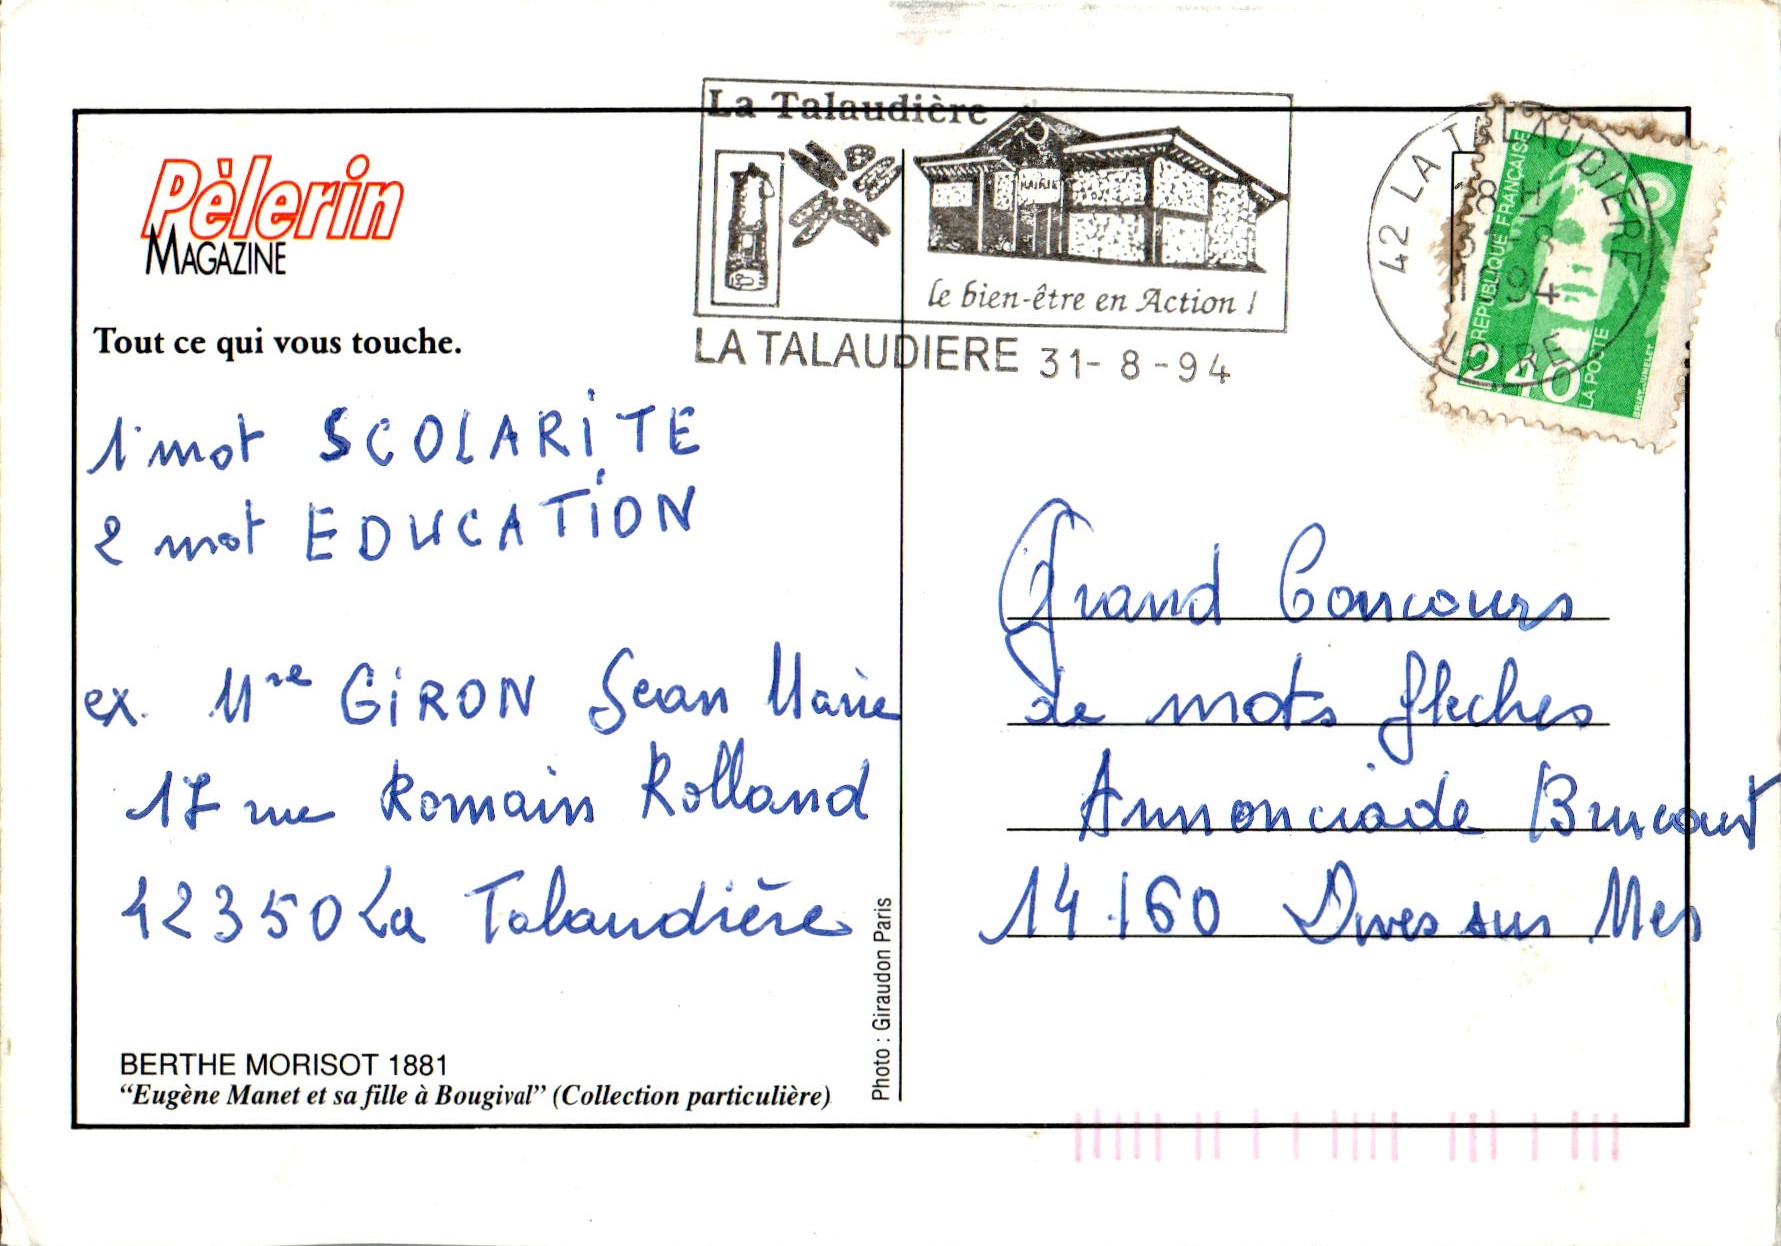 Pèlerin
MAGAZINE
Tout ce qui vous touche.
1 mot SCOLARiTE
2 mot EDUCATION
ex. Mre GiRON Jean Marie
17 rue Romain Rolland
42350 La Talaudière
BERTHE MORISOT 1881
“Eugène Manet et sa fille à Bougival” (Collection particulière)
Photo : Giraudon Paris
La Talaudière
MAIRIE
Le bien-être en Action !
LA TALAUDIERE 31- 8 -94
42 LA TALAUDIERE
18 H
31-8
1994
LOIRE
REPUBLIQUE FRANÇAISE
2,40
LA POSTE
Grand Concours
de mots fleches
Annonciade Brucourt
14160 Dives sur Mer